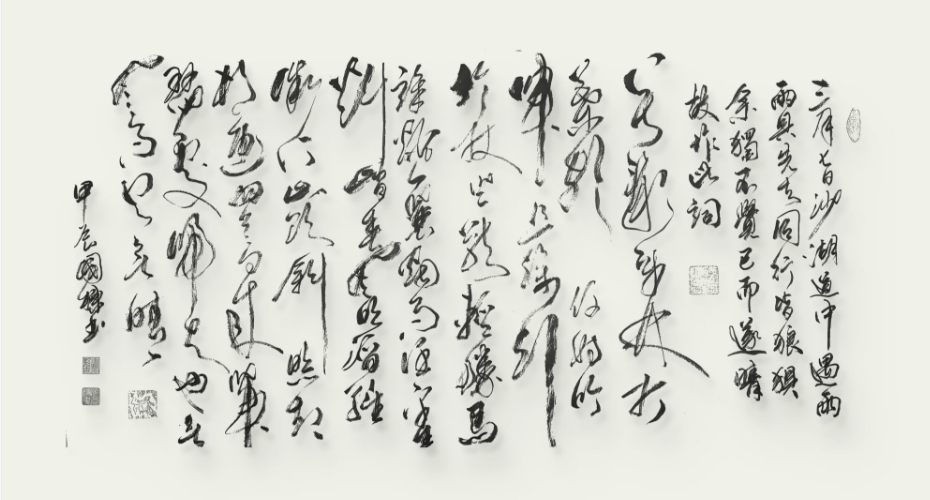 三月七日沙湖道中遇雨
雨具先去同行皆狼狽
余獨不覺已而遂晴
故作此詞
莫聽穿林打
葉聲何妨吟
嘯且徐行
竹杖芒鞋輕勝馬
誰怕一蓑烟雨任平生
料峭春風吹酒醒
微冷山頭斜照却
相迎回首向來蕭
瑟處歸去也無
風雨也無晴
甲辰國樑书